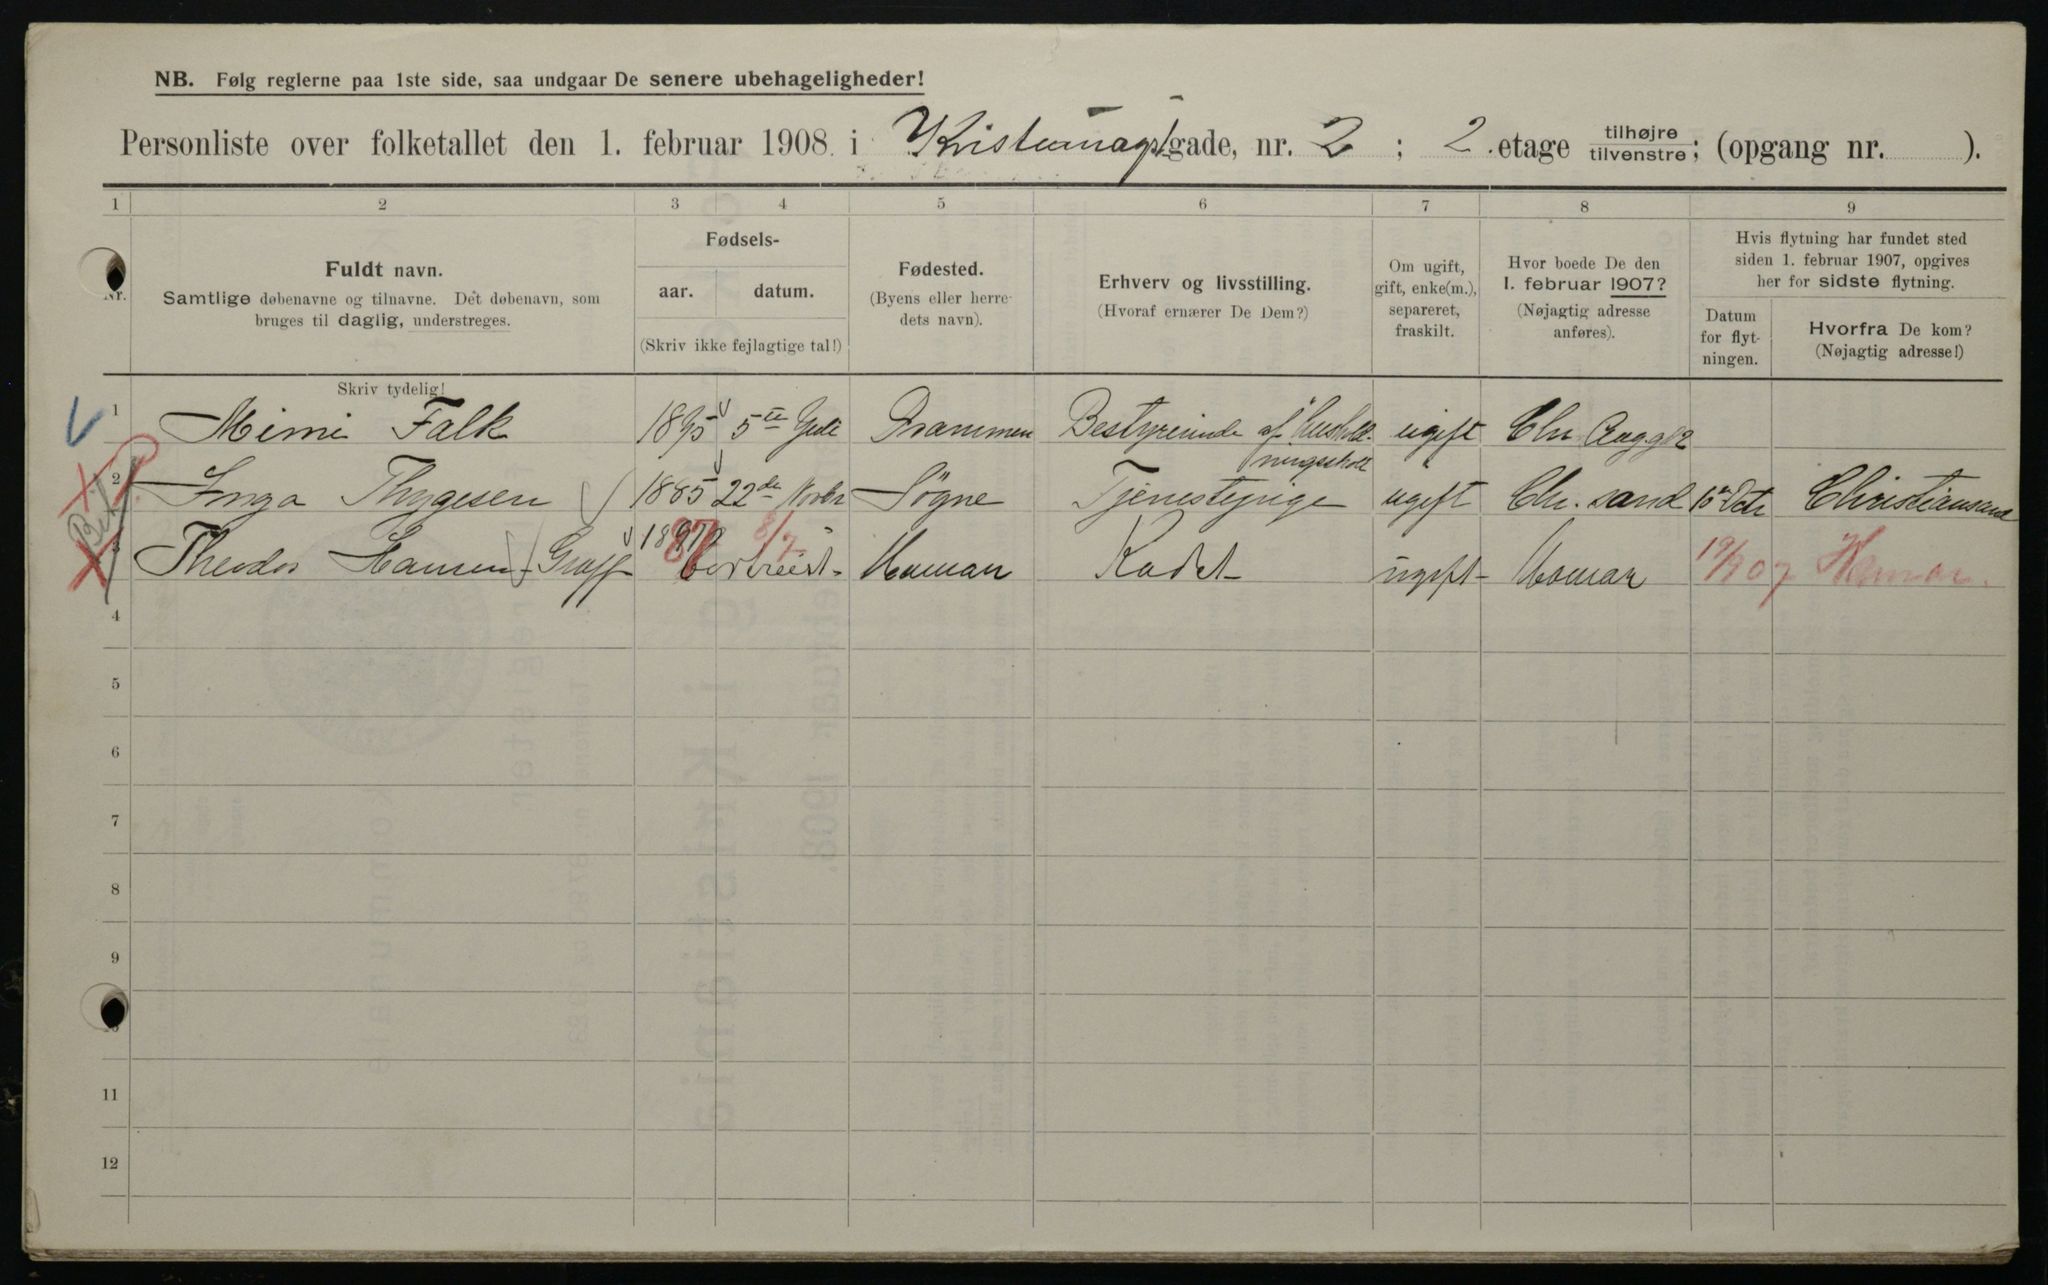 NB. Følg reglerne paa 1ste side, saa undgaar De senere ubehageligheder!
Personliste over folketallet den 1. februar 1908 i gade, nr. 2 ; 2 etage tilhøjre tilvenstre; (opgang nr. ).
1 2 3 4 5 6 7 8 9
Nr.
Fuldt navn.
Samtlige døbenavne og tilnavne. Det døbenavn, som
bruges til daglig, understreges.
Fødsels-
aar. datum.
(Skriv ikke fejlagtige tal!)
Fødested.
(Byens eller herre-
dets navn).
Erhverv og livsstilling.
(Hvoraf ernærer De Dem?)
Om ugift,
gift, enke(m.),
separeret,
fraskilt.
Hvor boede De den
1. februar 1907?
(Nøjagtig adresse
anføres).
Hvis flytning har fundet sted
siden 1. februar 1907, opgives
her for sidste flytning.
Datum
for flyt-
ningen.
Hvorfra De kom?
(Nøjagtig adresse!)
Skriv tydelig!
1 Mimi Falk 1895 5te Juli Drammen Bestyrerinde af hushold- ugift
ningsskole
2 Inga Thygesen 1885 22de Novbr Søgne Tjenestepige ugift Chr. sand 15 Octr Christiansand
Bet.
3 Theodor Hansen Graff 87 8/7 Hamar Kadet ugift Hamar 19/9 07 Hamar.
4
5
6
7
8
9
10
11
12